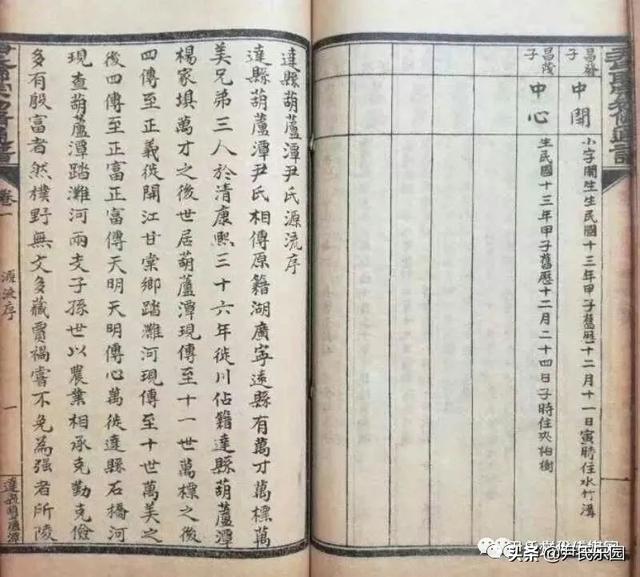 昌發子
中閏
小字閏生生民國十三年甲子舊歷十二月十一日寅時住水竹溝
昌茂子
中心
生民國十三年甲子舊歷十二月二十四日子時住夾柏樹
達縣葫蘆潭尹氏源流序
達縣葫蘆潭尹氏相傳原籍湖廣寧遠縣有萬才萬標萬
美兄弟三人於清康熙三十六年徙川佔籍達縣葫蘆潭
楊家填萬才之後世居葫蘆潭現傳至十一世萬標之後
四傳至正義徙開江甘棠鄉踏灘河現傳至十世萬美之
後四傳至正富正富傳天明天明傳心萬徙達縣石橋河
現查葫蘆潭踏灘河兩支子孫世以農業相承克勤克儉
多有殷富者然樸野無文多藏賈禍嘗不免為强者所陵
卷一
源流序
一
達縣葫蘆潭
头条 @尹氏乐园